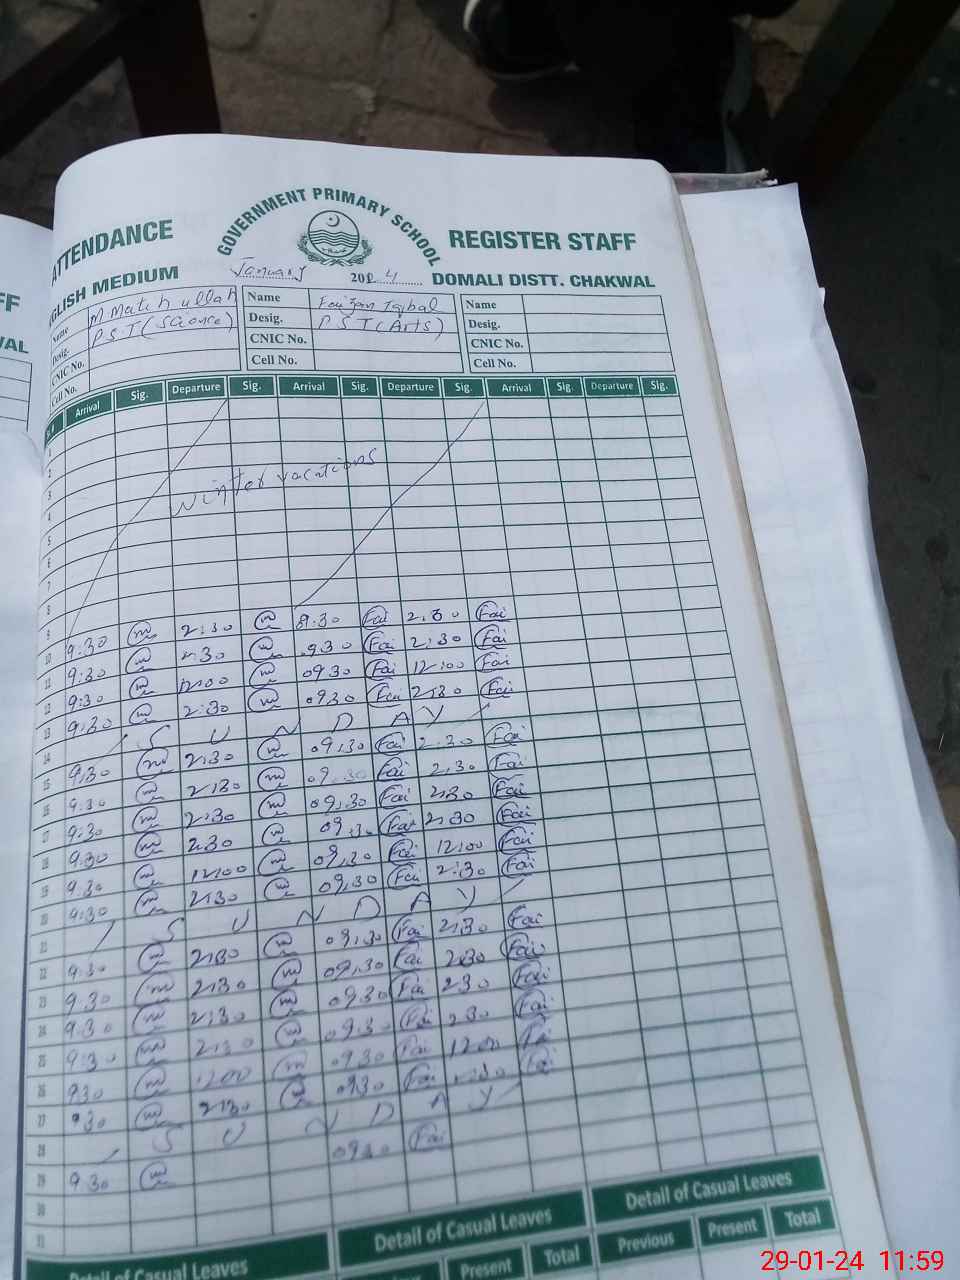 GOVERNMENT PRIMARY SCHOOL
ATTENDANCE REGISTER STAFF
GLISH MEDIUM January 202 4 DOMALI DISTT. CHAKWAL
FF
VAL
Name M Matih ullah Name Faizan Iqbal Name
Desig. P S T (Science) Desig. P S T (Arts) Desig.
CNIC No. CNIC No. CNIC No.
Cell No. Cell No. Cell No.
Arrival Sig. Departure Sig. Arrival Sig. Departure Sig. Arrival Sig. Departure Sig.
1
2
3 winter vacations
4
5
6
7
8
9
10 9:30 m 2:30 m 9.30 Fai 2:30 Fai
11 9:30 m 2:30 m 9.30 Fai 2:30 Fai
12 9:30 m 12:00 m 09.30 Fai 12:00 Fai
13 9:30 m 2:30 m 09.30 Fai 2:30 Fai
14 S U N D A Y
15 9:30 m 2:30 m 09.30 Fai 2.30 Fai
16 9:30 m 2:30 m 09.30 Fai 2.30 Fai
17 9:30 m 2:30 m 09.30 Fai 2:30 Fai
18 9:30 m 2:30 m 09.30 Fai 2:30 Fai
19 9:30 m 12:00 m 09.30 Fai 12:00 Fai
20 9:30 m 2:30 m 09.30 Fai 2:30 Fai
21 S U N D A Y
22 9:30 m 2:30 m 09.30 Fai 2:30 Fai
23 9:30 m 2:30 m 09.30 Fai 2:30 Fai
24 9:30 m 2:30 m 09.30 Fai 2:30 Fai
25 9:30 m 2:30 m 09.30 Fai 2:30 Fai
26 9:30 m 1200 m 09.30 Fai 1200 Fai
27 9:30 m 2:30 m 09.30 Fai 2:30 Fai
28 S U N D A Y
29 9:30 m 09.30 Fai
30
31
Detail of Casual Leaves Detail of Casual Leaves Detail of Casual Leaves
Present Total Previous Present Total
29-01-24 11:59